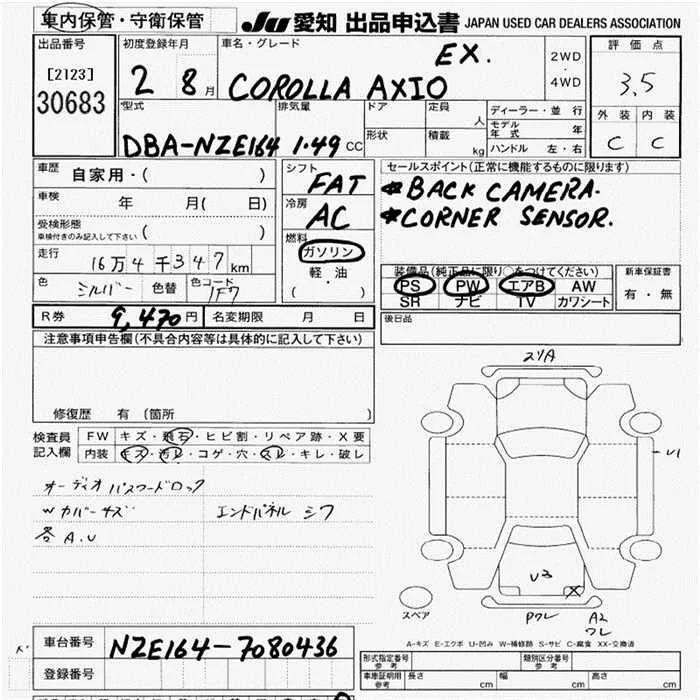 車内保管・守衛保管 JU 愛知 出品申込書 JAPAN USED CAR DEALERS ASSOCIATION
出品番号 初度登録年月 車名・グレード 評価点
[2123] EX. 2WD
30683 2 8月 COROLLA AXIO 4WD 3.5
型式 排気量 ドア 定員 人 ディーラー・並行 外装 内装
モデル年式 年
DBA-NZE164 1.49 CC 形状 積載 kg ハンドル 左・右 C C
車歴 自家用・( ) シフト FAT セールスポイント(正常に機能するものに限ります)
車検 年 月( 日) 冷房 AC BACK CAMERA.
受検形態 CORNER SENSOR.
車検付きのみ記入して下さい ( )
燃料 ガソリン
走行 16万4千347km 軽・油 装備品(純正品に限り○をつけてください) 新車保証書
色 シルバー 色替 色コード 1F7 ( ) PS PW エアB AW 有・無
SR ナビ TV カワシート
R券 9,470円 名変期限 月 日 後日品
注意事項申告欄(不具合内容等は具体的に記入して下さい)
スリA
修復歴 有 (箇所 )
検査員 FW キズ・飛石・ヒビ割・リペア跡・X要
記入欄 内装 キズ・汚レ・コゲ・穴・スレ・キレ・破レ
U1
オーディオパスワードロック
Wカバーキズ エンドパネル シワ
各A.U
U3
X
スペア Pワレ A2
ワレ
A-キズ E-エクボ U-凹み W-補修跡 S-サビ C-腐食 XX-交換済
車台番号 NZE164-7080436
形式指定番号 参考 類別区分番号 参考
登録番号 車庫証明用 参考 長さ cm 幅 cm 高さ cm